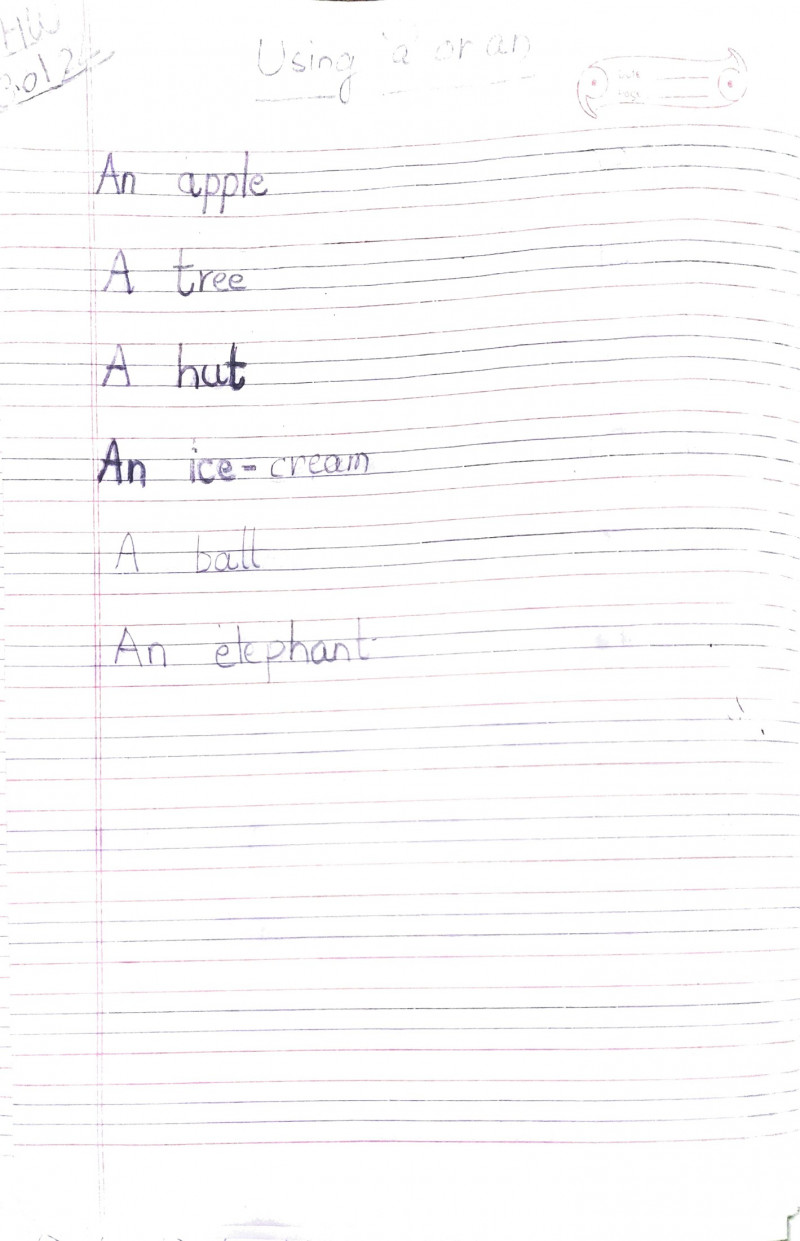 HW
Using 'a' or an
Date
Page
An apple
A tree
A hut
An ice-cream
A ball
An elephant